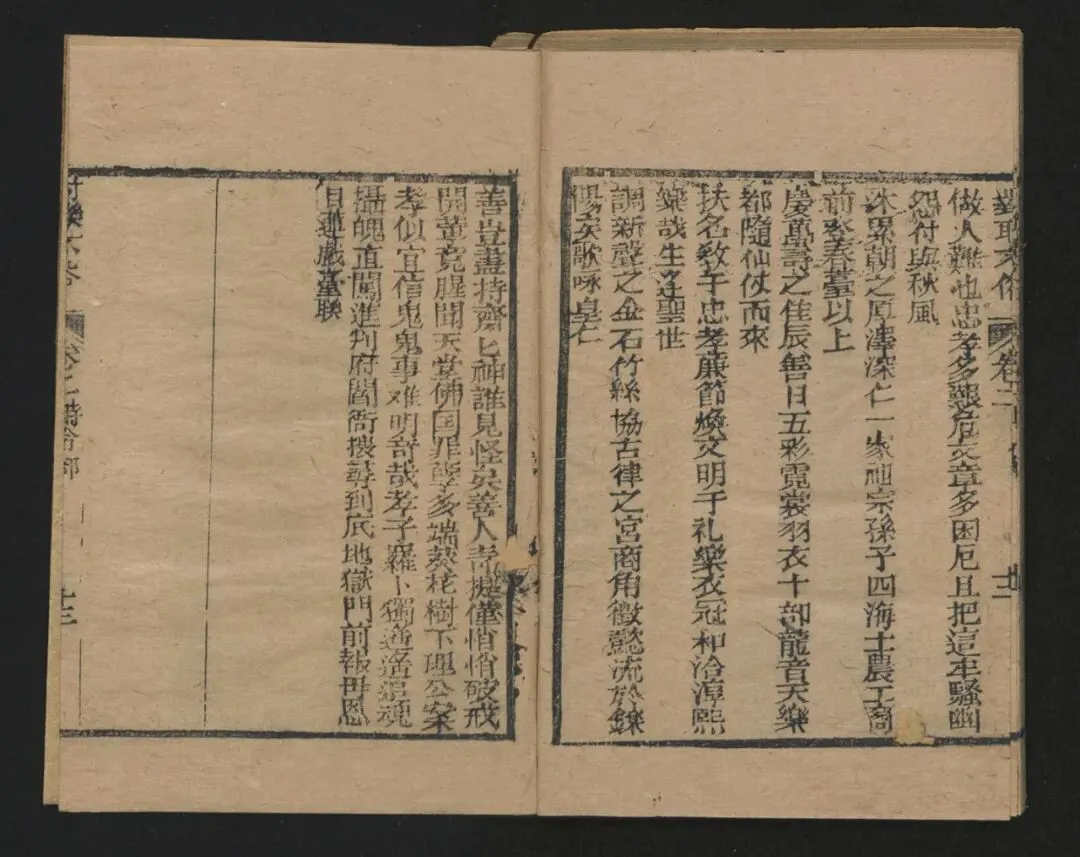 卷二
做人難也忠孝多艱危文章多困厄且把這牢騷幽
怨付與秋風
沐累朝之厚澤深仁一家祖宗孫子四海士農工商
前登春臺以上
慶萬壽之佳辰善日五彩霓裳羽衣十部龍音天樂
都隨仙仗而來
扶名教于忠孝廉節煥文明于礼樂衣冠和洽淳熙
樂哉生逢聖世
調新聲之金石竹絲協古律之宮商角徵懿流於鑠
暢矣歌咏皇仁
善豈盡持齋匕神誰見怪矣善人僮悄悄破戒
開葷竟腥聞天堂佛国罪孽多端葵花樹下理公案
孝似宜信鬼鬼事难明奇哉孝子羅卜獨遊追魂
攝魄直闖進判府閻衙搜尋到底地獄門前報母恩
目蓮戲臺联